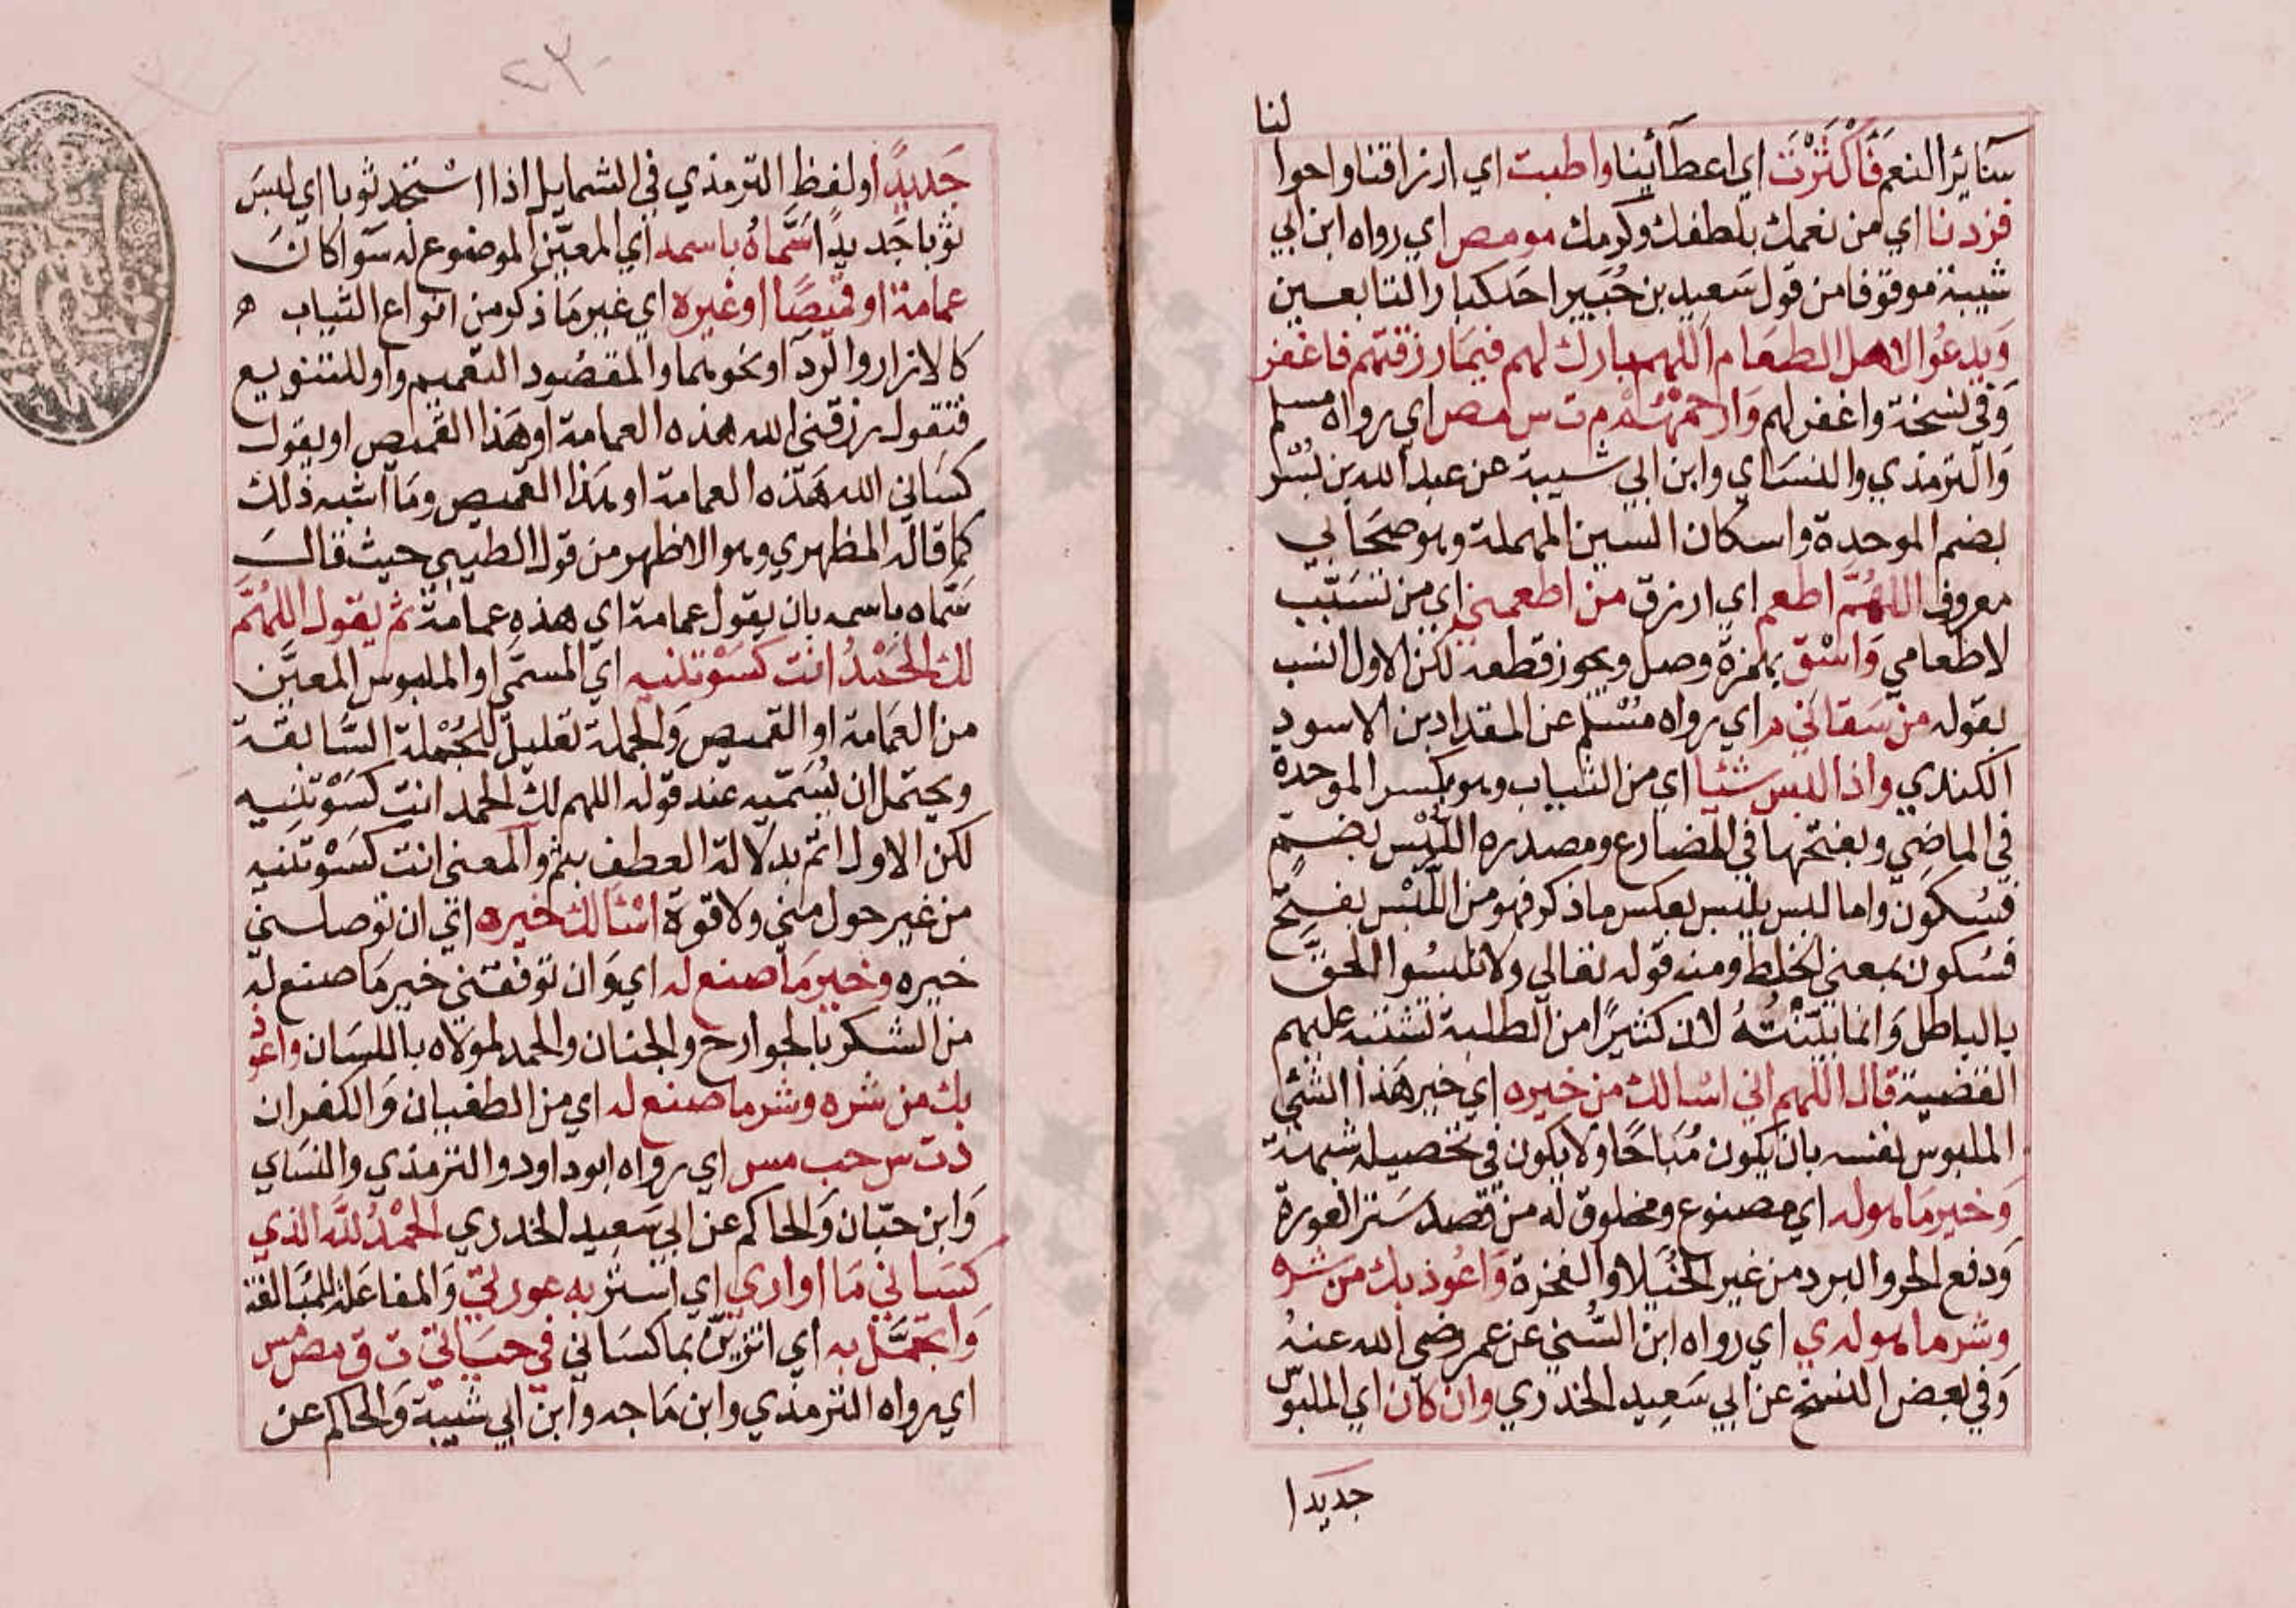 لنا
سآئر النعم فَأَكْثَرْتَ اي اعطآئنا واطبت اي ارزاقنا واحوا
فزدنا اي من نعمك بلطفك وكرمك مو مص اي رواه ابن ابي
شيبة موقوفا من قول سَعيد بن جُبَير احد كبار التابعين
وَيدعُوا لاهل الطعَام اللهم بارك لهم فيمَا رزقتهم فاغفر
وَفي نسخة واغفر لهم وَارحمْهُم م ت س مص اي رواه مسلم
وَالترمذي والنسَاي وابن ابي شيبة عن عبد الله بن بُسْر
بضم الموحدة واسكان السين المهملة وهو صحَابي
معروف اللهُمَّ اطعم اي ارزق من اطعمني اي من تسَبّب
لاطعامي وَاسْق بهمزة وصل ويجوز قطعه لكن الاول انسب
بقوله من سَقاني م اي رواه مُسْلم عن المقداد بن الاسود
الكندي واذا لبس شئيا اي من الثياب وهو بكسر الموحدة
في الماضي وبفتحها في المضارع ومصدره اللُّبْس بضم
فسُكون واما لبس يلبس بعكس ما ذكر فهو من اللَّبْس بفتح
فسُكون بمعنى الخلط ومنه قوله تعالى ولا تلبسُوا الحقَّ
بالباطل وَانما بَيَّنْتُهُ لان كثيرًا من الطلبة تشتبه عليهم
القضية قال اللهم اني اسْالك من خيره اي خير هَذا الشئ
الملبوس نفسه بان يكون مُبَاحًا ولا يكون في تحصيله شبهة
وَخير مَا هو له اي مصنوع ومخلوق له من قصد سَتر العَورة
وَدفع الحر والبرد من غير الخُيَلا والفخرة وَاعُوذ بك من شره
وشر ما هو له ي اي رواه ابن السُّني عن عمر رضي الله عنهُ
وَفي بعض النسخ عن ابي سَعِيد الخدري وان كان اي الملبوس
جديدا
٢٣٠
جَديدًا ولفظ الترمذي في الشمايل اذا اسْتجد ثوبا اي لبسَ
ثوبا جَديدًا سَمَّاهُ باسمه اي المعيَّن الموضوع له سَوآ كانَ
عمامة او قميصًا او غيره اي غير مَا ذكر من انواع الثياب ه
كالازار والردآ او نحوهما والمقصُود التعميم واو للتنويع
فتقول رزقني الله هذه العمامة او هَذا القميص او يقول
كسَاني الله هَذه العمامة او هَذا القميص ومَا اشبه ذلك
كما قاله المظهري وهو الاظهر من قول الطيبي حيث قالَ
سَمَّاه باسمه بان يقول عمامة اي هذه عمامة ثم يقول اللهُمَّ
لك الحَمْدُ انت كسَوْتنيه اي المسمّى او الملبوس المعيَّن
من العمَامة او القميص وَالجملة تعليل للجُمْلة السَّابقة
ويحتمل ان يُسَمّيه عند قوله اللهم لك الحمد انت كسَوْتنيه
لكن الاول اتم بدلالة العطف بثم والمعنى انت كسَوْتنيه
من غير حول مني ولا قوة اسْئالك خيره اي ان توصلني
خيره وخير مَا صنع له اي وَان توفقني خير مَا صنع له
من الشكر بالجوارح والجنان والحمد لمولاه باللسَان واعوذ
بك من شره وشر ما صنع له اي من الطغيان وَالكفران
د ت س حب مس اي رواه ابو داود والترمذي والنسَاي
وَابن حبّان وَالحاكم عن ابي سَعِيد الخدري الحمْدُ للّه الذي
كسَاني مَا اواري اي استر به عورتي وَالمفاعَلة للمبَالغة
وَاتجمَّل به اي اتزيّن بما كسَاني في حيَاتي ت ق مص مس
اي رواه الترمذي وابن مَاجه وابن ابي شيبة وَالحاكم عن